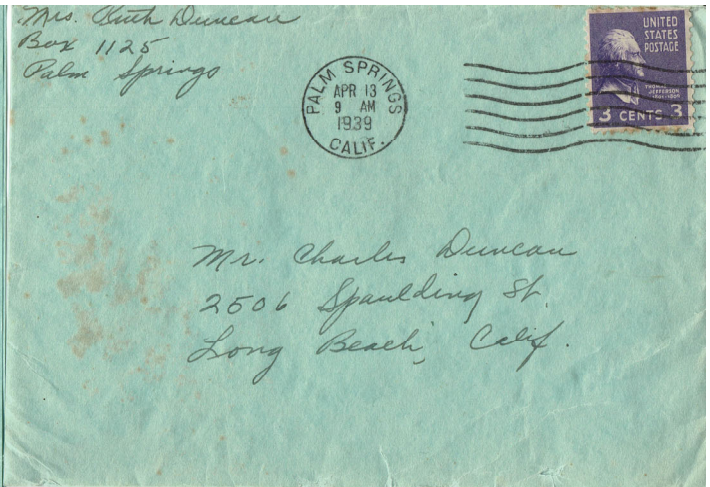 Mrs. Ruth Duncan
Box 1125
Palm Springs
PALM SPRINGS
APR 13
9 AM
1939
CALIF.
UNITED
STATES
POSTAGE
THOMAS
JEFFERSON
1801-1809
3 CENTS 3
Mr. Charles Duncan
2506 Spaulding St.
Long Beach, Calif.